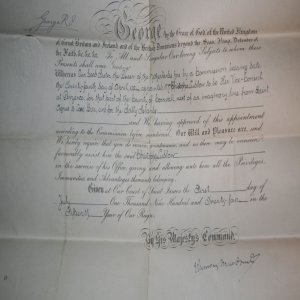 George R.I.
George by the Grace of God, of the United Kingdom
of Great Britain and Ireland and of the British Dominions beyond the Seas, King, Defender of
the Faith &c. &c. &c. To All and Singular Our loving Subjects to whom these
Presents shall come, Greeting!
Whereas Our Good Sister the Queen of the Netherlands has by a Commission bearing date
the Twenty fourth day of April, to be Her Vice-Consul
at Penzance, for that part of the County of Cornwall, east of an imaginary line from Saint
Agnes to and for the Scilly Islands
and We having approved of this appointment
according to the Commission before mentioned, Our Will and Pleasure are, and
We hereby require that you do receive, countenance, and as there may be occasion,
favourably assist him the said
in the exercise of his Office, giving and allowing unto him all the Privileges,
Immunities and Advantages thereunto belonging.
Given at Our Court of Saint James's the first day of
July One Thousand Nine Hundred and Twenty in the
Year of Our Reign.
By His Majesty's Command,